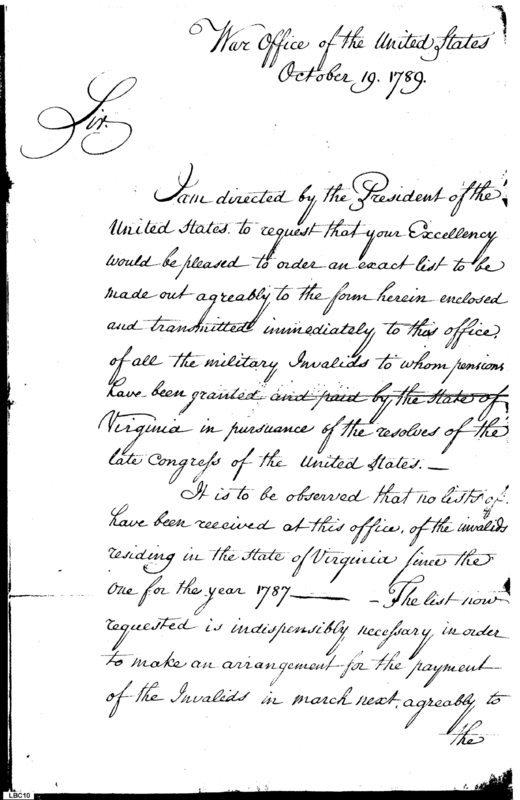 War Office of the United States
October 19. 1789.
Sir.
I am directed by the President of the
United States. to request that your Excellency
would be pleased to order an exact list to be
made out agreably to the form herein enclosed
and transmitted immediately to this office,
of all the military Invalids to whom pensions
have been granted and paid by the State of
Virginia in pursuance of the resolves of the
late Congress of the United States. —
It is to be observed that no lists of
have been received at this office, of the invalids
residing in the State of Virginia since the
one for the year 1787 —— – The list now
requested is indispensibly necessary in order
to make an arrangement for the payment
of the Invalids in march next, agreably to
the
LBC10